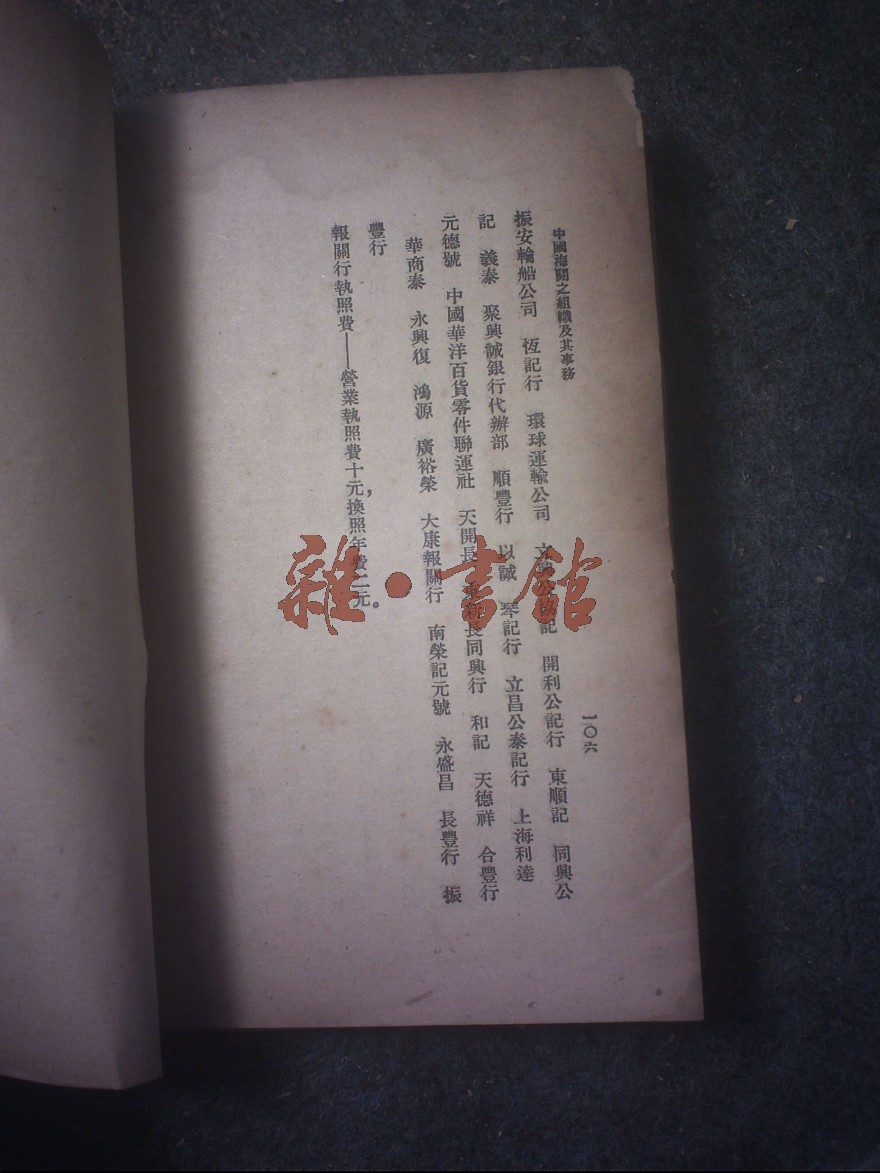 中國海關之組織及其事務
一〇六
振安輪船公司 恆記行 環球運輸公司 立興公協記 開利公記行 東順記 同興公
記 義泰 聚興誠銀行代辦部 順豐行 以誠 琴記行 立昌公泰記行 上海利達
元德號 中國華洋百貨零件聯運社 天開長 長同興行 和記 天德祥 合豐行
華商泰 永興復 鴻源 廣裕榮 大康報關行 南榮記元號 永盛昌 長豐行 振
豐行
報關行執照費——營業執照費十元,換照年費二元。
雜·書館